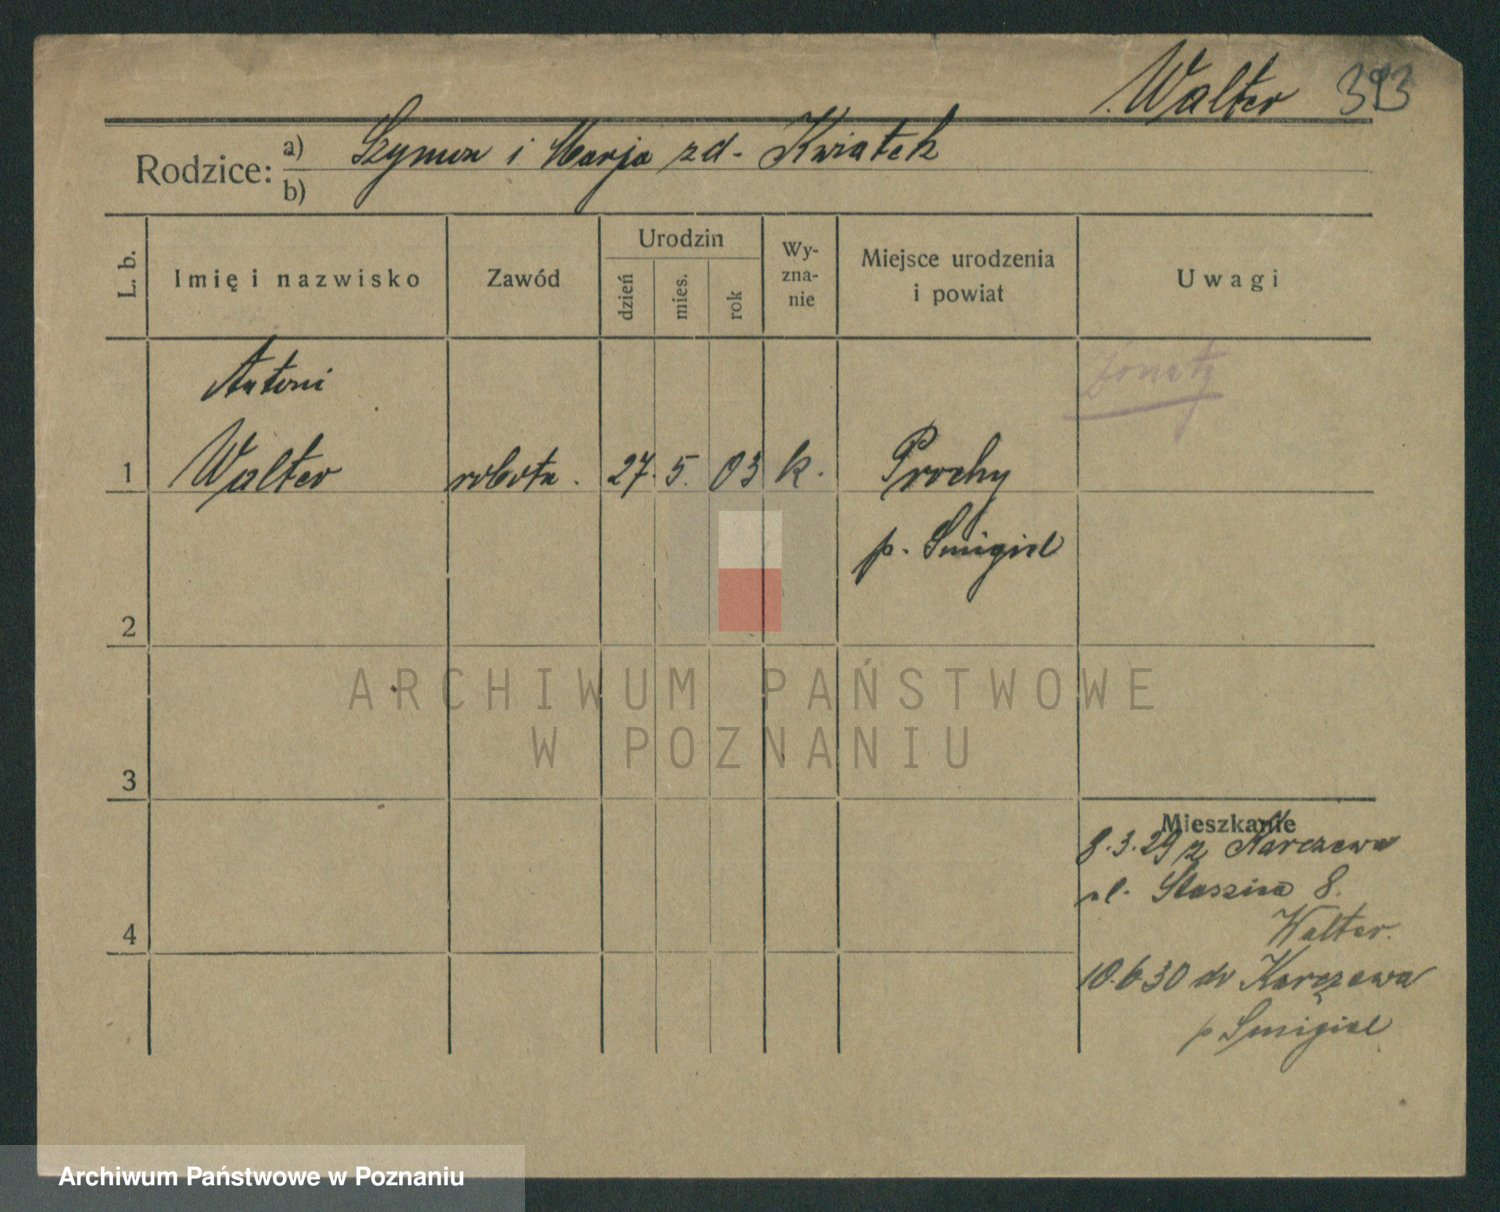 Walter 393
Rodzice: a) Szymon i Marja zd. Kwiatek
b)
L. b. Imię i nazwisko Zawód Urodzin dzień mies. rok Wyzna-nie Miejsce urodzenia i powiat Uwagi
Antoni
1 Walter robotn. 27. 5. 03 k. Prochy
p. Smigiel
2
ARCHIWUM PAŃSTWOWE
W POZNANIU
3
Mieszkanie
8.3.29 z Karczewa
ul. Staszica 8.
Walter.
4
10.6.30 do Karczewa
p Smigiel
Archiwum Państwowe w Poznaniu